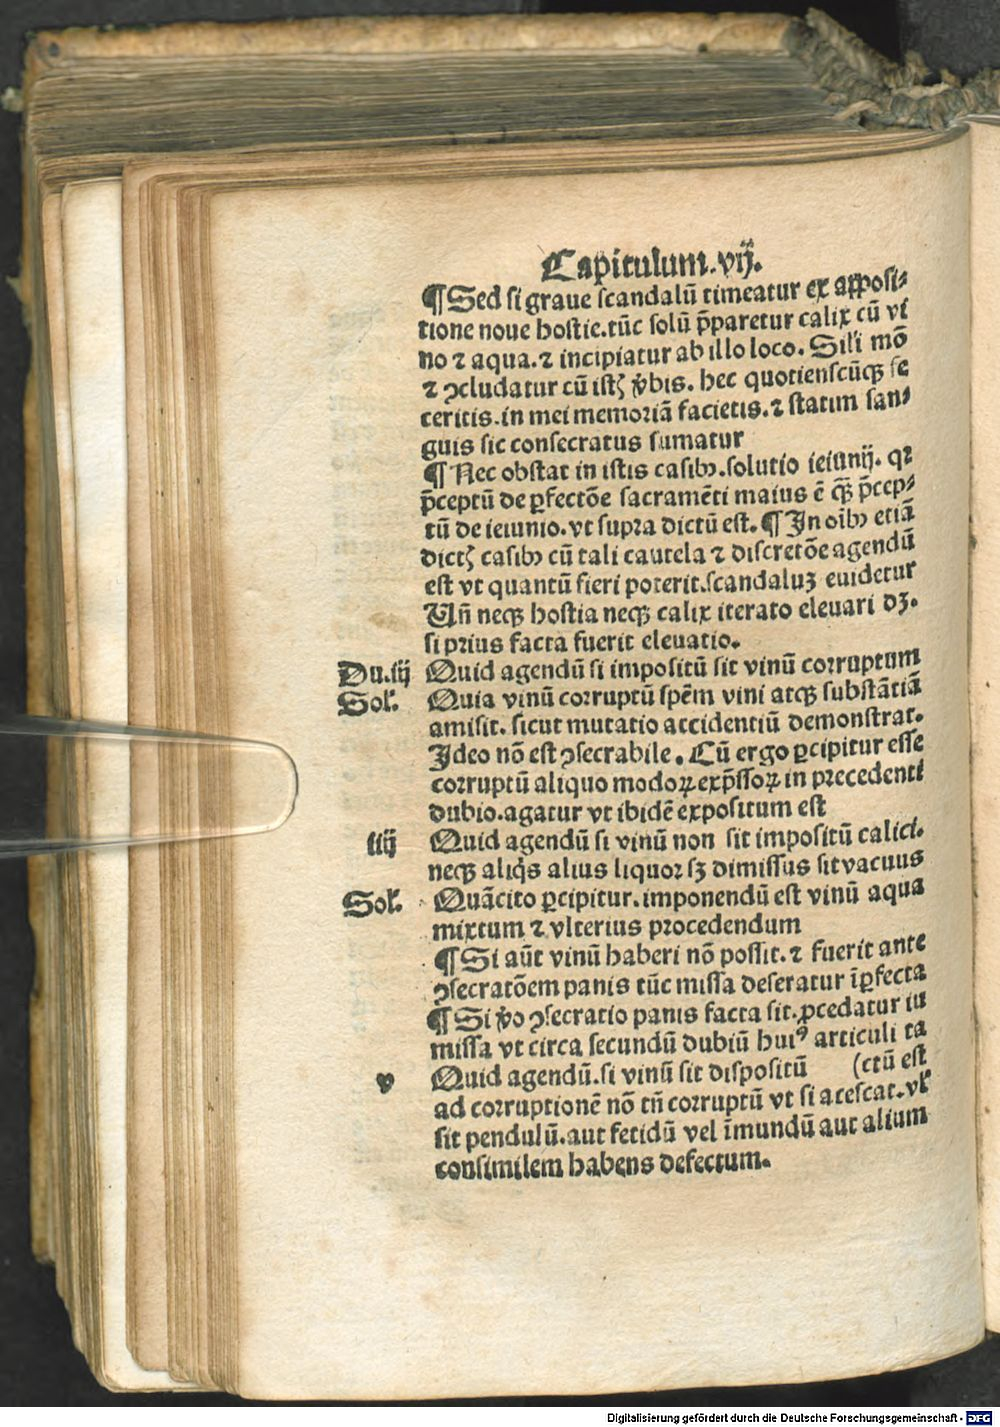 Capitulum.vij.
¶ Sed si graue scandalū timeatur ex apposi⸗
tione noue hostie.tūc solū p̄paretur calix cū vi
no ⁊ aqua.⁊ incipiatur ab illo loco. Sil'i mō
⁊ ꝯcludatur cū istꝭ v̄bis. hec quotienscūqꝫ fe
ceritis.in mei memoriā facietis.⁊ statim san⸗
guis sic consecratus sumatur
¶ Nec obstat in istis casibꝰ.solutio ieiunij. qꝛ
p̄ceptū de ꝑfectōe sacramēti maius ē qꝫ̄ p̄cep⸗
tū de ieiunio.vt supra dictū est. ¶ In oībꝰ etiā
dictꝭ casibꝰ cū tali cautela ⁊ discretōe agendū
est vt quantū fieri poterit.scandaluꝫ euidetur
Un̄ neqꝫ hostia neqꝫ calix iterato eleuari dꝫ.
si prius facta fuerit eleuatio.
Du.iij Quid agendū si impositū sit vinū corruptum
Sol'. Quia vinū corruptū spēm vini atqꝫ substātiā
amisit. sicut mutatio accidentiū demonstrat.
Ideo nō est ꝯsecrabile. Cū ergo ꝑcipitur esse
corruptū aliquo modoꝝ exp̄ssoꝝ in precedenti
dubio.agatur vt ibidē expositum est
iiij Quid agendū si vinū non sit impositū calici.
neqꝫ aliq̇s alius liquor sꝫ dimissus sit vacuus
Sol'. Quācito ꝑcipitur. imponendū est vinū aqua
mixtum ⁊ vlterius procedendum
¶ Si aūt vinū haberi nō possit. ⁊ fuerit ante
ꝯsecratōem panis tūc missa deseratur īꝑfecta
¶ Si v̄o ꝯsecratio panis facta sit.ꝓcedatur in
missa vt circa secundū dubiū huiꝰ articuli ta
v Quid agendū.si vinū sit dispositū (ctū est
ad corruptionē nō tn̄ corruptū vt si acescat.vl'
sit pendulū.aut fetidū vel īmundū aut alium
consimilem habens defectum.
Digitalisierung gefördert durch die Deutsche Forschungsgemeinschaft - DFG